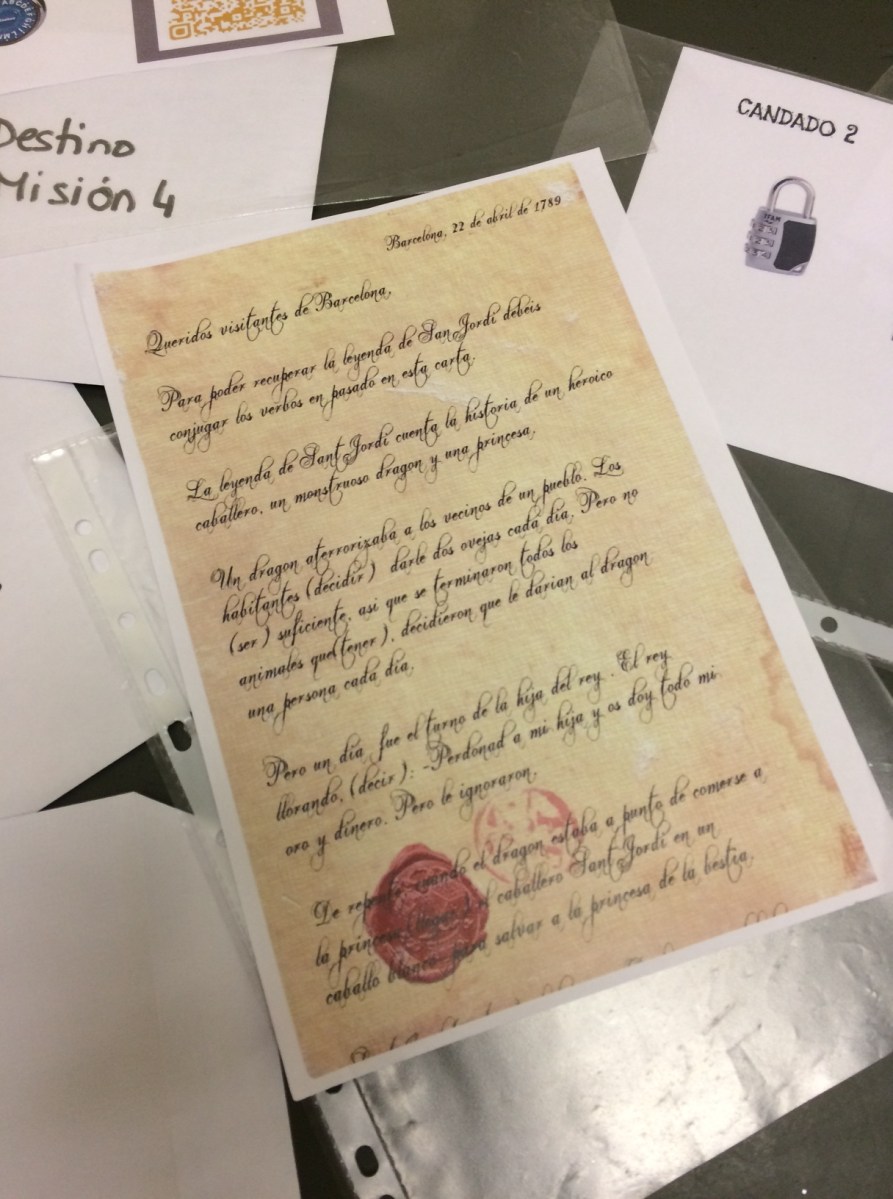 Destino
Misión 4
CANDADO 2
Barcelona, 22 de abril de 1789
Queridos visitantes de Barcelona,
Para poder recuperar la leyenda de San Jordi debéis
conjugar los verbos en pasado en esta carta.
La leyenda de Sant Jordi cuenta la historia de un heroico
caballero, un monstruoso dragon y una princesa.
Un dragon aterrorizaba a los vecinos de un pueblo. Los
habitantes (decidir) darle dos ovejas cada día. Pero no
(ser) suficiente, asi que se terminaron todos los
animales que(tener), decidieron que le darían al dragon
una persona cada día.
Pero un día fue el turno de la hija del rey. El rey
llorando, (decir): -Perdonad a mi hija y os doy todo mi
oro y dinero. Pero le ignoraron.
De repente, cuando el dragon estaba a punto de comerse a
la princesa (llegar) el caballero Sant Jordi en un
caballo blanco para salvar a la princesa de la bestia.